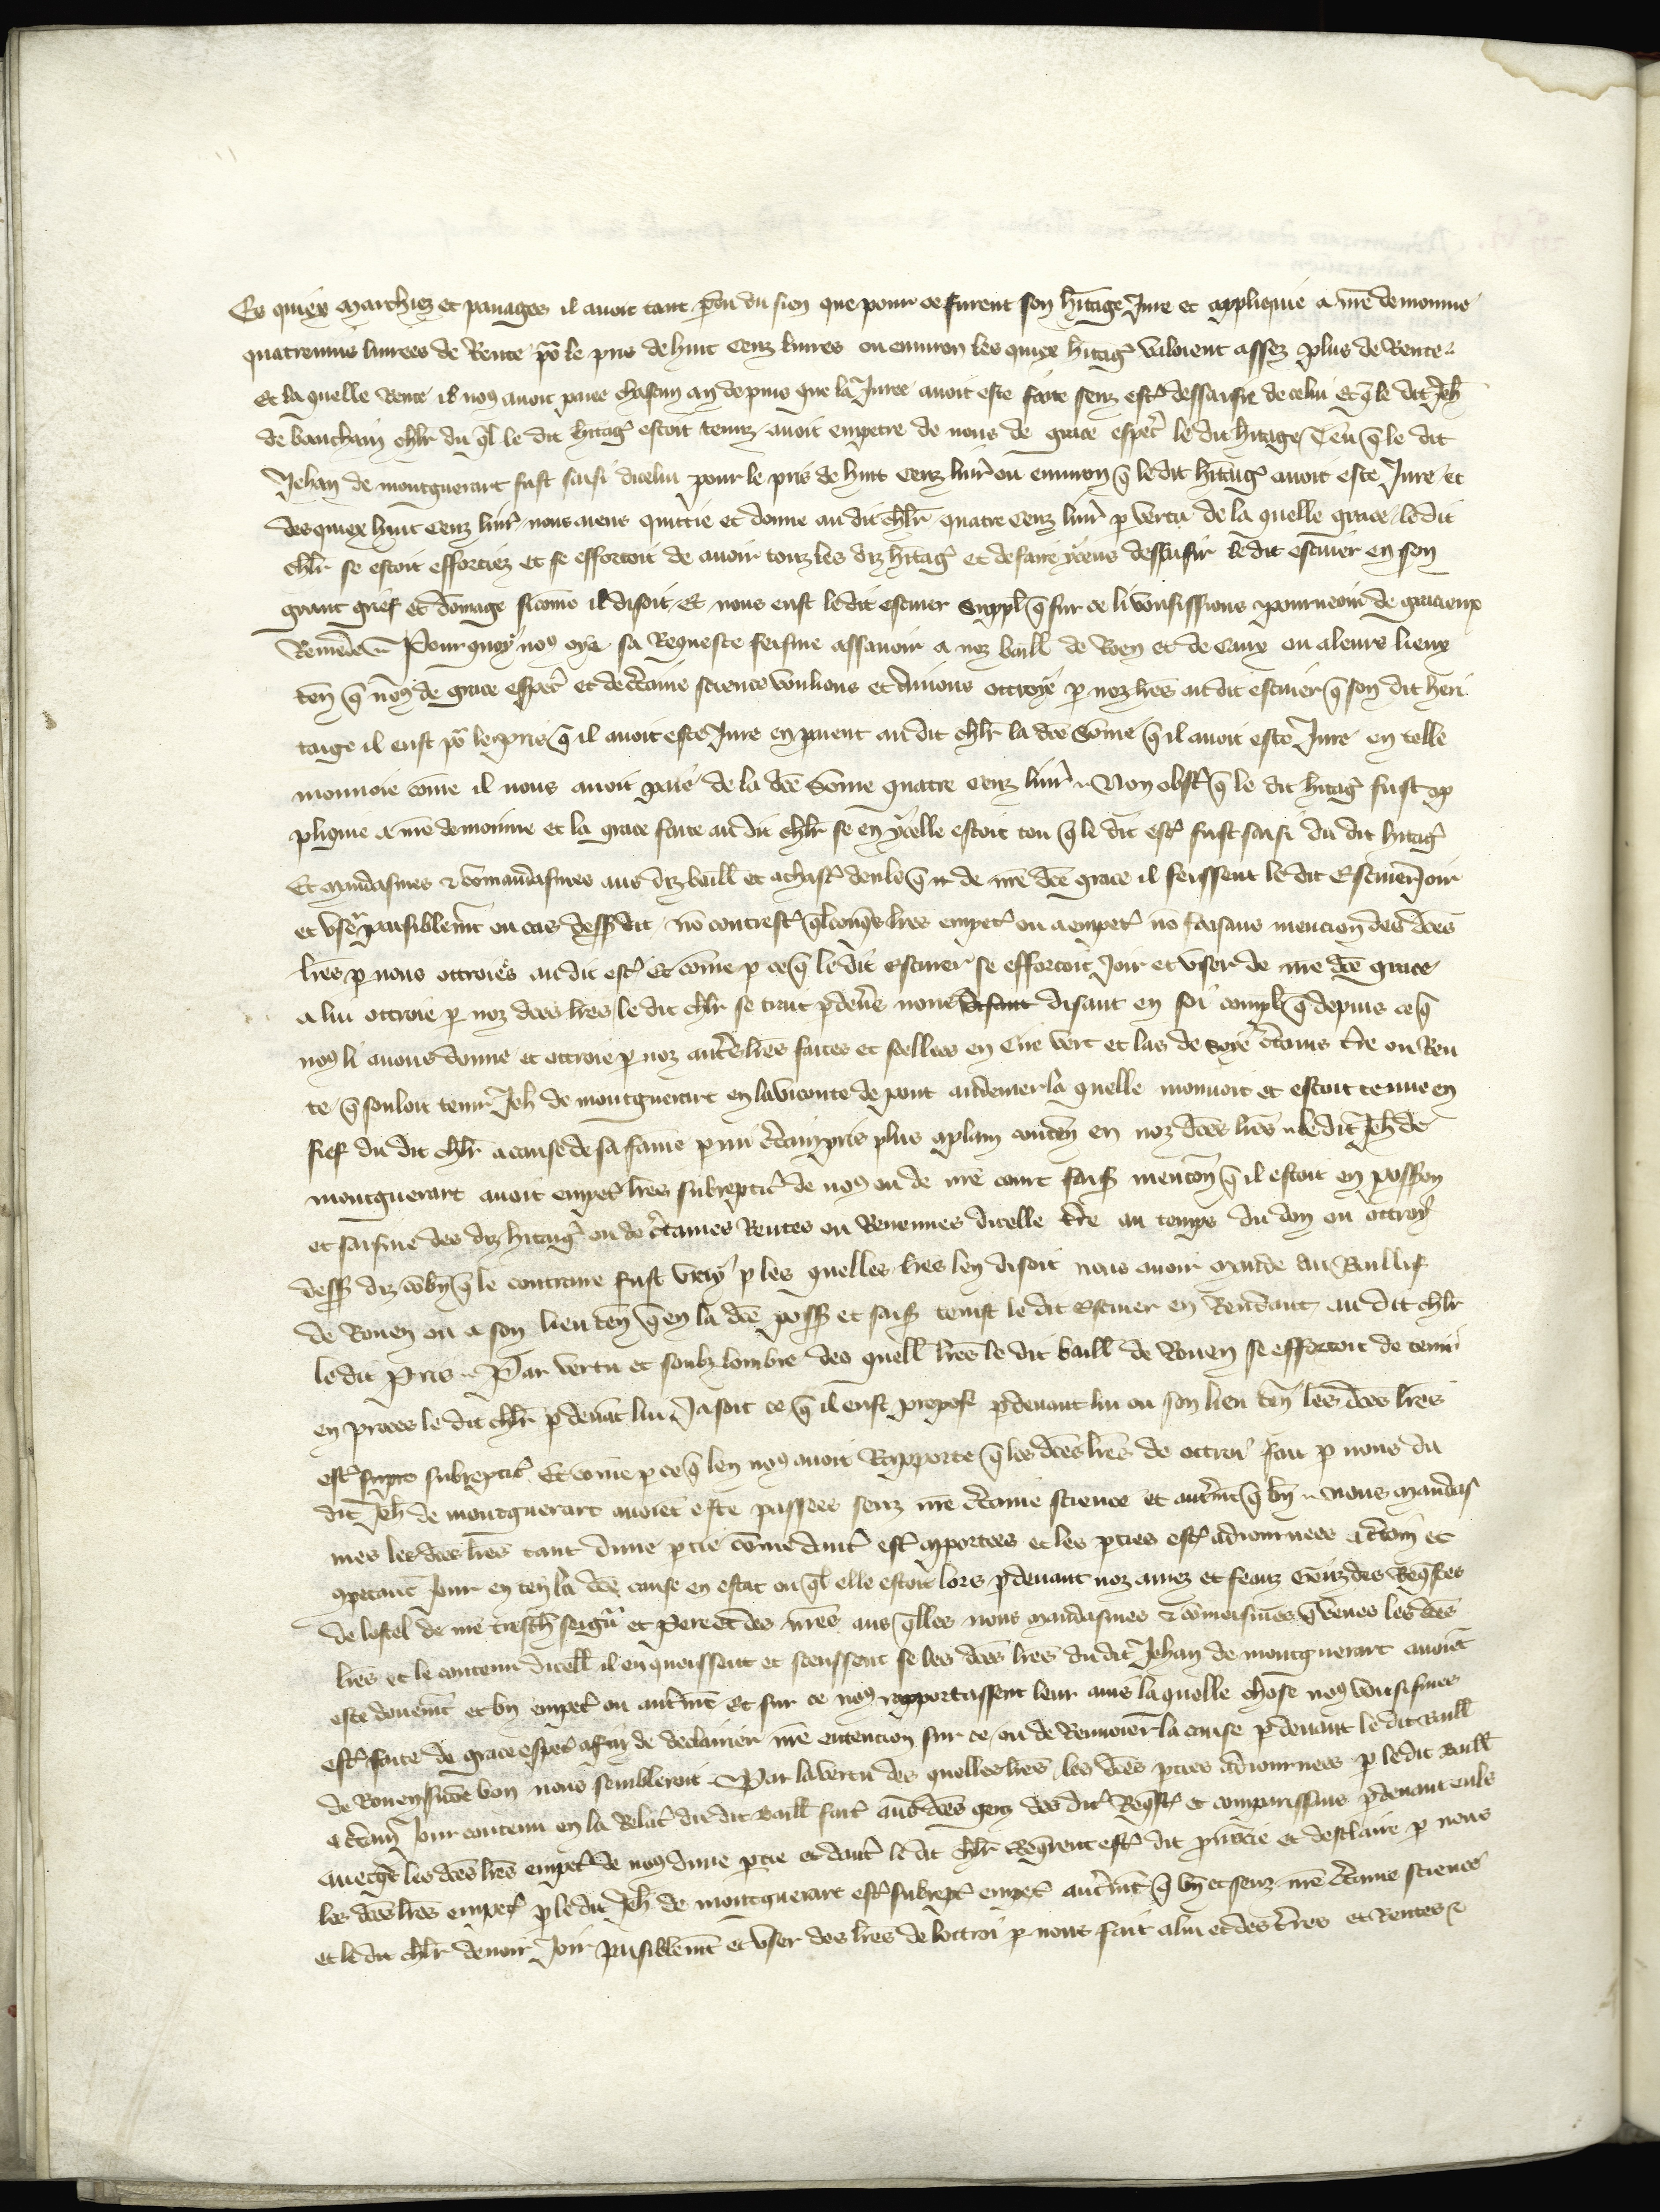 Es quiex marchiez et panages il avoit tant pdu du sien que pour ce furent son hitage Jure et applique a nre demainne
quatrevins livrees de Rente po le pris de huit cenz livres ou environ les quiex hitag valoient assez plus de Rente
Et la quelle Rente il no avoit paiee chascun an depuis que la Juree avoit este faite senz est dessaisi de celui Et q le dit Jeh
de bauchain chlr du ql le dit hitag estoit tenuz avoit empetre de nous de grace espec le dit hitage Tou q le dit
Jehan de montguerart fust saisi dicelui pour le pris de huit cenz livr ou environ q le dit hitag avoit este Jure et
des quiex huit cenz livr nous aiens quittie et donne au dit chlr quatre cenz livr p vertu de la quelle grace le dit
chlr se estoit efforciez et se efforcoit de avoir touz les diz hitag et de faire yceus dessaisir le dit escuier en son
grant grief et domage sicome il disoit Et nous eust le dit escuier suppl q sur ce li vousissions pourveoir de gracieux
Remede Pour quoy no oye sa Requeste feisme assavoir a noz baill de Roen et de Caux ou a leurs lieux
ten q nous de grace espec et de ctaine science voulions et avions ottroye p noz lres au dit escuier q son dit heri
taige il eust po le pris q il avoit este Jure en paient au dit chlr la dce some q il avoit este Jure en telle
monnoie come il nous avoit paie de la dce some quatre cenz livr Non obst q le dit hitag fust ap
plique a nre demainne et la grace faite au dit chlr se en ycelle estoit tou q le dit esc fust saisi du dit hitag
Et mandasmes & comandasmes aus diz baill et a chasc deuls q de nre dce grace il feissent le dit Escuier Joir
et user paisiblemt ou cas dessus dit no contrest qlconqs lres empet ou a empet no faisans mencion des dces
lres p nous ottroies au dit esc Et come p ce q le dit Escuier se efforcoit Joir et user de nre dce grace
a lui ottroie p noz dces lres le dit chlr se trait pdevs nous disant disant en soi compl q depuis ce q
no li avons donne et ottroie p noz autres lres faites et seellees en Cire vert et las de soye ctains tre ou Ren
te q souloit tenir Jeh de montguerart en la viconte de pont audemer la quelle mouvoit et estoit tenue en
fief du dit chlr a cause de sa fame pmi ctain pris plus a plain conten en noz dces lres le dit Jeh de
montguerart avoit empet lres subreptic de no ou de nre court fais mencon q il estoit en posson
et saisine des diz hitaig ou de ctaines Rentes ou Revenues dicelle tre au temps du don ou ottroy
dess diz cobn q le contraire fust vray p les quelles lres len disoit nous avoir mande au Baillif
de Rouen ou a son lieu ten q en la dce poss et sais tenist le dit Escuier en Rendant au dit chlr
le dit Pris Par vertu et soubz lombre des quell lres le dit baill de Rouen se efforcoit de tenir
en proces le dit chlr pdevat lui Ja soit ce q il eust propose pdevant lui ou son lieu ten les dces lres
est subreptic Et come p ce q len no avoit Rapporte q les dces lres de ottroi fait p nous au
dit Jeh de montguerart avoiet este passees senz nre ctaine science et autremt q bn nous mandas
mes les dces lres tant dune ptie come dautr est aportees et les pties est adiournees a ctain et
opetant Jour en ten la dce cause en estat ou ql elle estoit lors pdevant noz amez et feauz Genz des Reqstes
de lostel de nre tresch seignr et Pere et des nres aus qlles nous mandasmes & comeismes q veues les dces
lres et le contenu dicell il enqueissent et sceussent se les dces lres du dit Jehan de montguerart avoiet
este deuemt et bn empet ou autremt Et sur ce no rapportassent leur avis la quelle chose no vousismes
est faite de grace espec afin de declairier nre entencion sur ce ou de Renvoier la cause pdevant le dit Baill
de Rouen sicoe bon nous sembleroit Par la vertu des quelles lres les dces pties adiournees p le dit Baill
a ctain Jour contenu en la Relat du dit Baill fait aus dces genz des dit Reqst et comparissans pdevant euls
avecqs les dces lres empet de no dune ptie et dautr le dit chlr Reqrent est dit pnucie et desclaire p nous
les dces lres empet p le dit Jeh de montguerart est subrept empet autremt q bn et senz nre ctaine science
et le dit chlr devoir Joir paisiblemt et user des lres de lottroi p nous fait a lui et des tres et Rentes